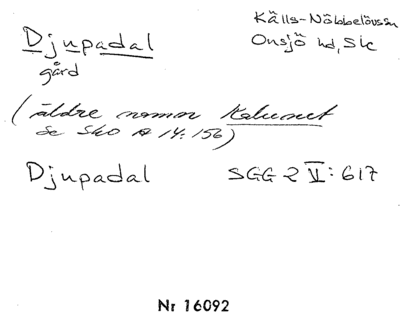 Djupadal
Källs-Nöbbelövssn
Onsjö hd, Sk
gård
(äldre namn Kalvenet
se SkO A 14:156)
Djupadal SGG 2 V: 617
Nr 16092